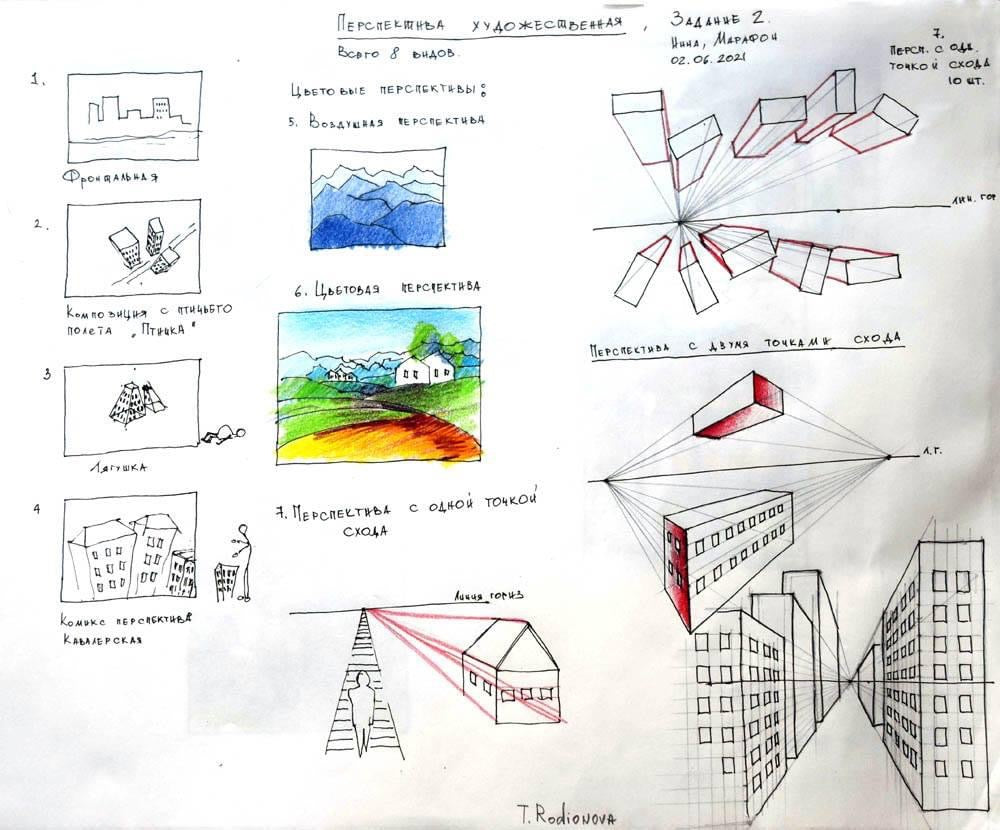 Перспектива художественная, Задание 2.
Всего 8 видов.
Нина, Марафон
02.06.2021
1.
Фронтальная
2.
Композиция с птичьего
полета „Птичка"
3
Лягушка
4
Комикс перспектива
Кавалерская
Цветовые перспективы:
5. Воздушная перспектива
6. Цветовая перспектива
7. Перспектива с одной точкой
схода
Линия гориз
7.
Персп. с одн.
точкой схода
10 шт.
лин. гор
Перспектива с двумя точками схода
л.г.
T. Rodionova